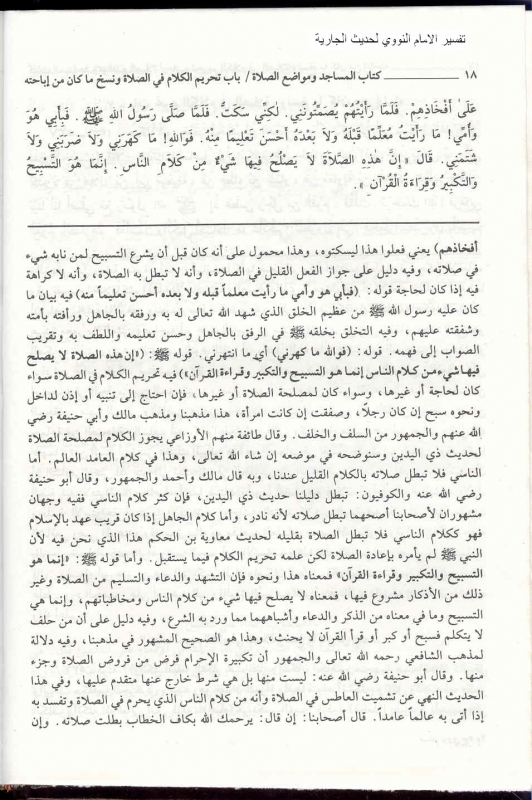 تفسير الامام النووي لحديث الجارية
١٨ كتاب المساجد ومواضع الصلاة / باب تحريم الكلام في الصلاة ونسخ ما كان من إباحته
عَلَىٰ أَفْخَاذِهِمْ. فَلَمَّا رَأَيْتُهُمْ يُصَمِّتُونَنِي. لَكِنِّي سَكَتُّ. فَلَمَّا صَلَّى رَسُولُ اللهِ ﷺ. فَبِأَبِي هُوَ
وَأُمِّي! مَا رَأَيْتُ مُعَلِّمًا قَبْلَهُ وَلَا بَعْدَهُ أَحْسَنَ تَعْلِيمًا مِنْهُ. فَوَاللهِ! مَا كَهَرَنِي وَلَا ضَرَبَنِي وَلَا
شَتَمَنِي. قَالَ «إِنَّ هٰذِهِ الصَّلَاةَ لَا يَصْلُحُ فِيهَا شَيْءٌ مِنْ كَلَامِ النَّاسِ. إِنَّمَا هُوَ التَّسْبِيحُ
وَالتَّكْبِيرُ وَقِرَاءَةُ الْقُرْآنِ».
أفخاذهم) يعني فعلوا هذا ليسكتوه، وهذا محمول على أنه كان قبل أن يشرع التسبيح لمن نابه شيء
في صلاته، وفيه دليل على جواز الفعل القليل في الصلاة، وأنه لا تبطل به الصلاة، وأنه لا كراهة
فيه إذا كان لحاجة قوله: (فبأبي هو وأمي ما رأيت معلماً قبله ولا بعده أحسن تعليماً منه) فيه بيان ما
كان عليه رسول الله ﷺ من عظيم الخلق الذي شهد الله تعالى له به ورفقه بالجاهل ورأفته بأمته
وشفقته عليهم، وفيه التخلق بخلقه ﷺ في الرفق بالجاهل وحسن تعليمه واللطف به وتقريب
الصواب إلى فهمه. قوله: (فوالله ما كهرني) أي ما انتهرني. قوله ﷺ: («إن هذه الصلاة لا يصلح
فيها شيء من كلام الناس إنما هو التسبيح والتكبير وقراءة القرآن») فيه تحريم الكلام في الصلاة سواء
كان لحاجة أو غيرها، وسواء كان لمصلحة الصلاة أو غيرها، فإن احتاج إلى تنبيه أو إذن لداخل
ونحوه سبح إن كان رجلاً، وصفقت إن كانت امرأة، هذا مذهبنا ومذهب مالك وأبي حنيفة رضي
الله عنهم والجمهور من السلف والخلف. وقال طائفة منهم الأوزاعي يجوز الكلام لمصلحة الصلاة
لحديث ذي اليدين وسنوضحه في موضعه إن شاء الله تعالى، وهذا في كلام العامد العالم. أما
الناسي فلا تبطل صلاته بالكلام القليل عندنا، وبه قال مالك وأحمد والجمهور، وقال أبو حنيفة
رضي الله عنه والكوفيون: تبطل دليلنا حديث ذي اليدين، فإن كثر كلام الناسي ففيه وجهان
مشهوران لأصحابنا أصحهما تبطل صلاته لأنه نادر، وأما كلام الجاهل إذا كان قريب عهد بالإسلام
فهو ككلام الناسي فلا تبطل الصلاة بقليله لحديث معاوية بن الحكم هذا الذي نحن فيه لأن
النبي ﷺ لم يأمره بإعادة الصلاة لكن علمه تحريم الكلام فيما يستقبل. وأما قوله ﷺ: «إنما هو
التسبيح والتكبير وقراءة القرآن» فمعناه هذا ونحوه فإن التشهد والدعاء والتسليم من الصلاة وغير
ذلك من الأذكار مشروع فيها، فمعناه لا يصلح فيها شيء من كلام الناس ومخاطباتهم، وإنما هي
التسبيح وما في معناه من الذكر والدعاء وأشباههما مما ورد به الشرع، وفيه دليل على أن من حلف
لا يتكلم فسبح أو كبر أو قرأ القرآن لا يحنث، وهذا هو الصحيح المشهور في مذهبنا، وفيه دلالة
لمذهب الشافعي رحمه الله تعالى والجمهور أن تكبيرة الإحرام فرض من فروض الصلاة وجزء
منها. وقال أبو حنيفة رضي الله عنه: ليست منها بل هي شرط خارج عنها متقدم عليها، وفي هذا
الحديث النهي عن تشميت العاطس في الصلاة وأنه من كلام الناس الذي يحرم في الصلاة وتفسد به
إذا أتى به عالماً عامداً. قال أصحابنا: إن قال: يرحمك الله بكاف الخطاب بطلت صلاته. وإن